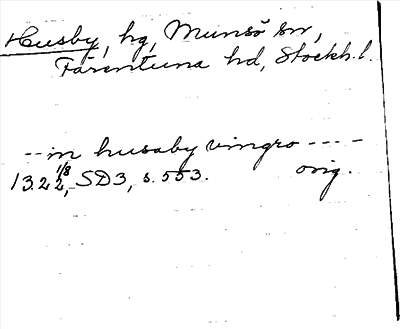 Husby, hg, Munsö sn,
Färentuna hd, Stockh. l.
-- in husaby vingro ----
13.22 1/8, SD3, s. 553. orig.